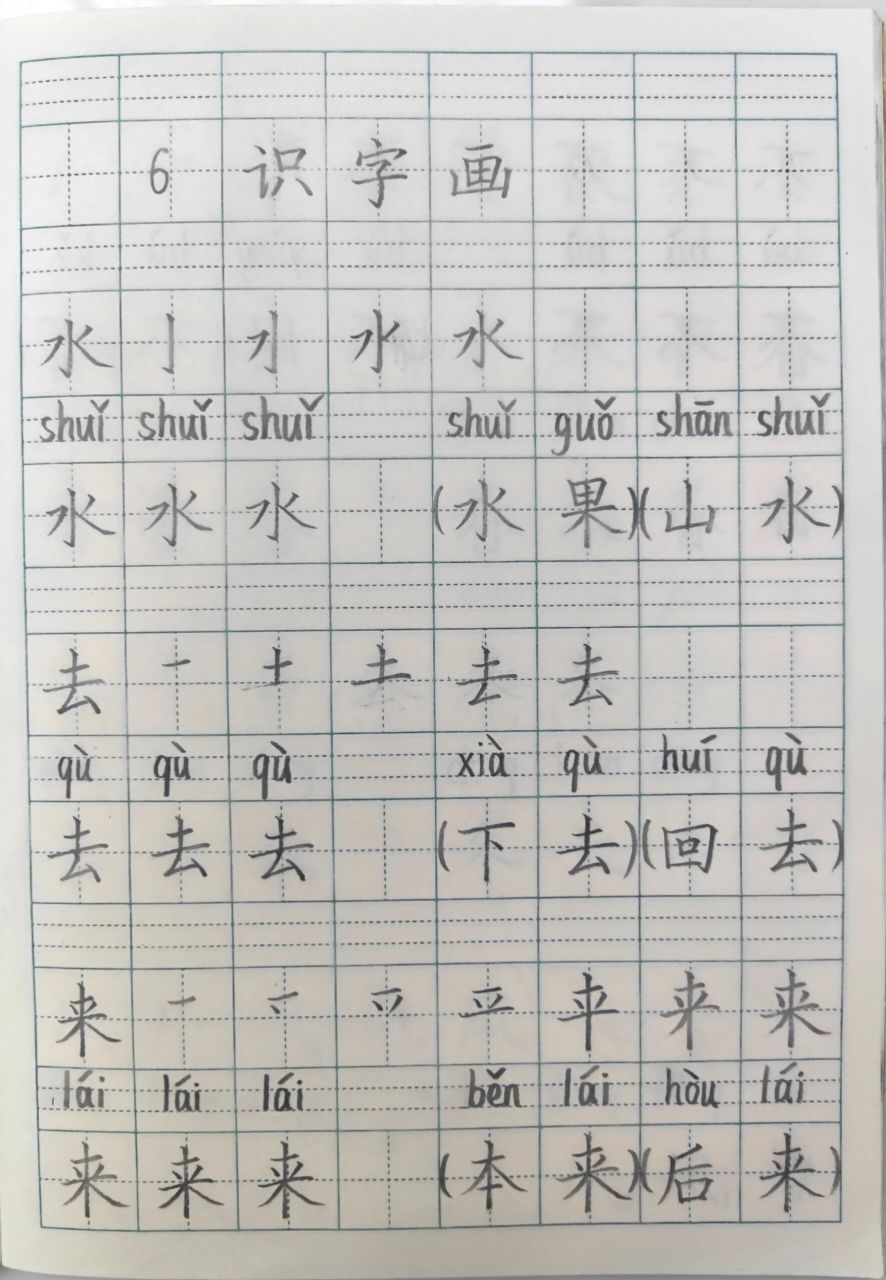 6 识字画
水 亅 水 水
shuǐ shuǐ shuǐ shuǐ guǒ shān shuǐ
水 水 水 (水果)(山水)
去 一 十 土 去 去
qù qù qù xià qù huí qù
去 去 去 (下去)(回去)
来 一 平 来 来
lái lái lái běn lái hòu lái
来 来 来 (本来)(后来)